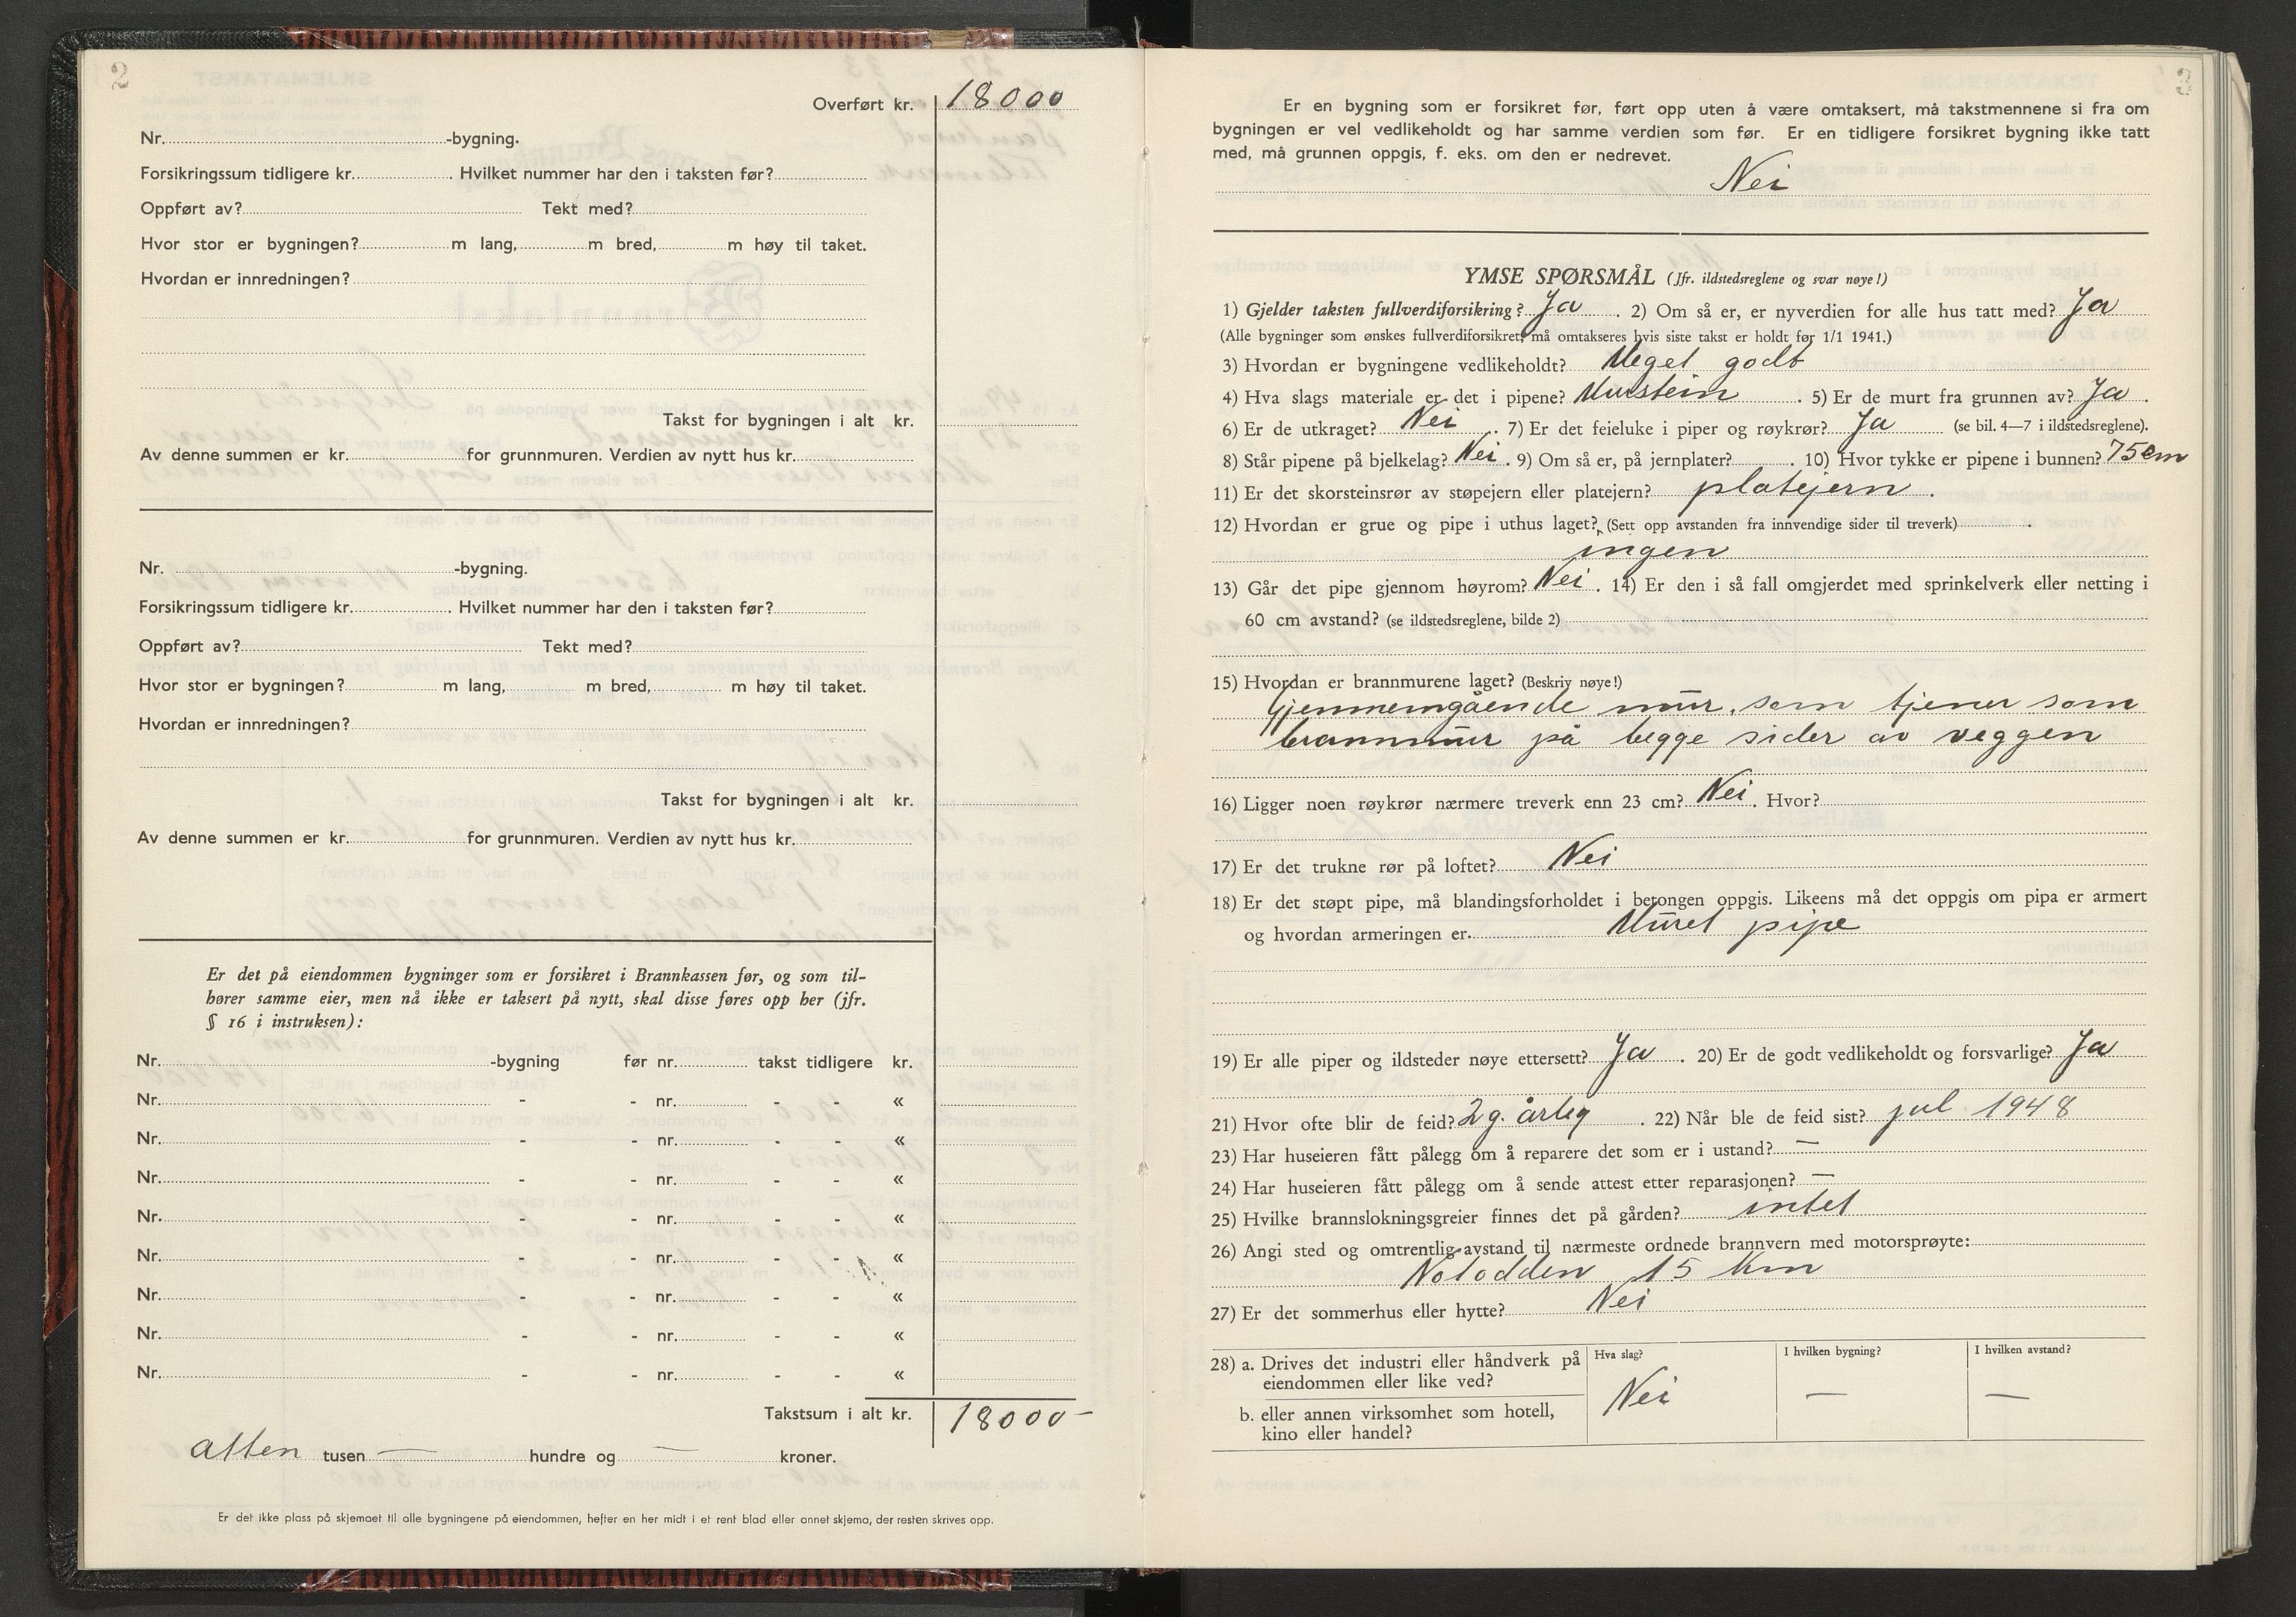 2
Overført kr. 18000
Nr. -bygning.
Forsikringssum tidligere kr. . Hvilket nummer har den i taksten før?
Oppført av? Tekt med?
Hvor stor er bygningen? m lang, m bred, m høy til taket.
Hvordan er innredningen?
Takst for bygningen i alt kr.
Av denne summen er kr. for grunnmuren. Verdien av nytt hus kr.
Nr. -bygning.
Forsikringssum tidligere kr. . Hvilket nummer har den i taksten før?
Oppført av? Tekt med?
Hvor stor er bygningen? m lang, m bred, m høy til taket.
Hvordan er innredningen?
Takst for bygningen i alt kr.
Av denne summen er kr. for grunnmuren. Verdien av nytt hus kr.
Er det på eiendommen bygninger som er forsikret i Brannkassen før, og som til-
hører samme eier, men nå ikke er taksert på nytt, skal disse føres opp her (jfr.
§ 16 i instruksen):
Nr. -bygning før nr. takst tidligere kr.
Nr. - - nr. - - «
Nr. - - nr. - - «
Nr. - - nr. - - «
Nr. - - nr. - - «
Nr. - - nr. - - «
Nr. - - nr. - - «
Nr. - - nr. - - «
Nr. - - nr. - - «
Takstsum i alt kr. 18000-
atten tusen — hundre og — kroner.
Er det ikke plass på skjemaet til alle bygningene på eiendommen, hefter en her midt i et rent blad eller annet skjema, der resten skrives opp.
3
Er en bygning som er forsikret før, ført opp uten å være omtaksert, må takstmennene si fra om
bygningen er vel vedlikeholdt og har samme verdien som før. Er en tidligere forsikret bygning ikke tatt
med, må grunnen oppgis, f. eks. om den er nedrevet.
Nei
YMSE SPØRSMÅL (Jfr. ildstedsreglene og svar nøye!)
1) Gjelder taksten fullverdiforsikring? Ja . 2) Om så er, er nyverdien for alle hus tatt med? Ja
(Alle bygninger som ønskes fullverdiforsikret, må omtakseres hvis siste takst er holdt før 1/1 1941.)
3) Hvordan er bygningene vedlikeholdt? Meget godt
4) Hva slags materiale er det i pipene? Murstein . 5) Er de murt fra grunnen av? Ja .
6) Er de utkraget? Nei . 7) Er det feieluke i piper og røykrør? Ja (se bil. 4—7 i ildstedsreglene).
8) Står pipene på bjelkelag? Nei . 9) Om så er, på jernplater? . 10) Hvor tykke er pipene i bunnen? 75cm
11) Er det skorsteinsrør av støpejern eller platejern? platejern .
12) Hvordan er grue og pipe i uthus laget? (Sett opp avstanden fra innvendige sider til treverk) .
ingen
13) Går det pipe gjennom høyrom? Nei . 14) Er den i så fall omgjerdet med sprinkelverk eller netting i
60 cm avstand? (se ildstedsreglene, bilde 2)
15) Hvordan er brannmurene laget? (Beskriv nøye!)
Gjennemgående mur, som tjener som
brannmur på begge sider av veggen
16) Ligger noen røykrør nærmere treverk enn 23 cm? Nei . Hvor?
17) Er det trukne rør på loftet? Nei
18) Er det støpt pipe, må blandingsforholdet i betongen oppgis. Likeens må det oppgis om pipa er armert
og hvordan armeringen er. Muret pipe
19) Er alle piper og ildsteder nøye ettersett? Ja . 20) Er de godt vedlikeholdt og forsvarlige? Ja
21) Hvor ofte blir de feid? 2 g. årlig . 22) Når ble de feid sist? jul 1948
23) Har huseieren fått pålegg om å reparere det som er i ustand? —
24) Har huseieren fått pålegg om å sende attest etter reparasjonen? —
25) Hvilke brannslokningsgreier finnes det på gården? intet
26) Angi sted og omtrentlig avstand til nærmeste ordnede brannvern med motorsprøyte:
Notodden 15 km
27) Er det sommerhus eller hytte? Nei
28) a. Drives det industri eller håndverk på
eiendommen eller like ved?
b. eller annen virksomhet som hotell,
kino eller handel?
Hva slag?
Nei
I hvilken bygning?
—
I hvilken avstand?
—